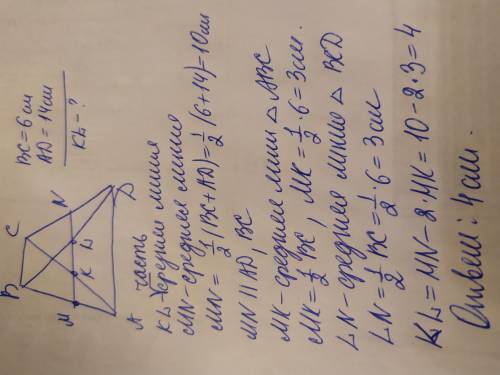 B C
M K L N
A D
BC = 6 см
AD = 14 см
KL - ?
KL - часть средней линии
MN - средняя линия
MN = 1/2 (BC + AD) = 1/2 (6 + 14) = 10 см
MN || AD, BC
MK - средняя линия △ ABC
MK = 1/2 BC, MK = 1/2 · 6 = 3 см.
LN - средняя линия △ BCD
LN = 1/2 BC = 1/2 · 6 = 3 см
KL = MN - 2 · MK = 10 - 2 · 3 = 4
Ответ: 4 см.